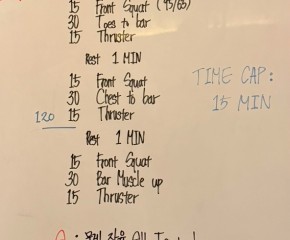 15 Front Squat (95/65)
30 Toes to bar
15 Thruster
Rest 1 MIN
15 Front Squat
30 Chest to bar
120 15 Thruster
Rest 1 MIN
15 Front Squat
30 Bar Muscle up
15 Thruster
TIME CAP:
15 MIN